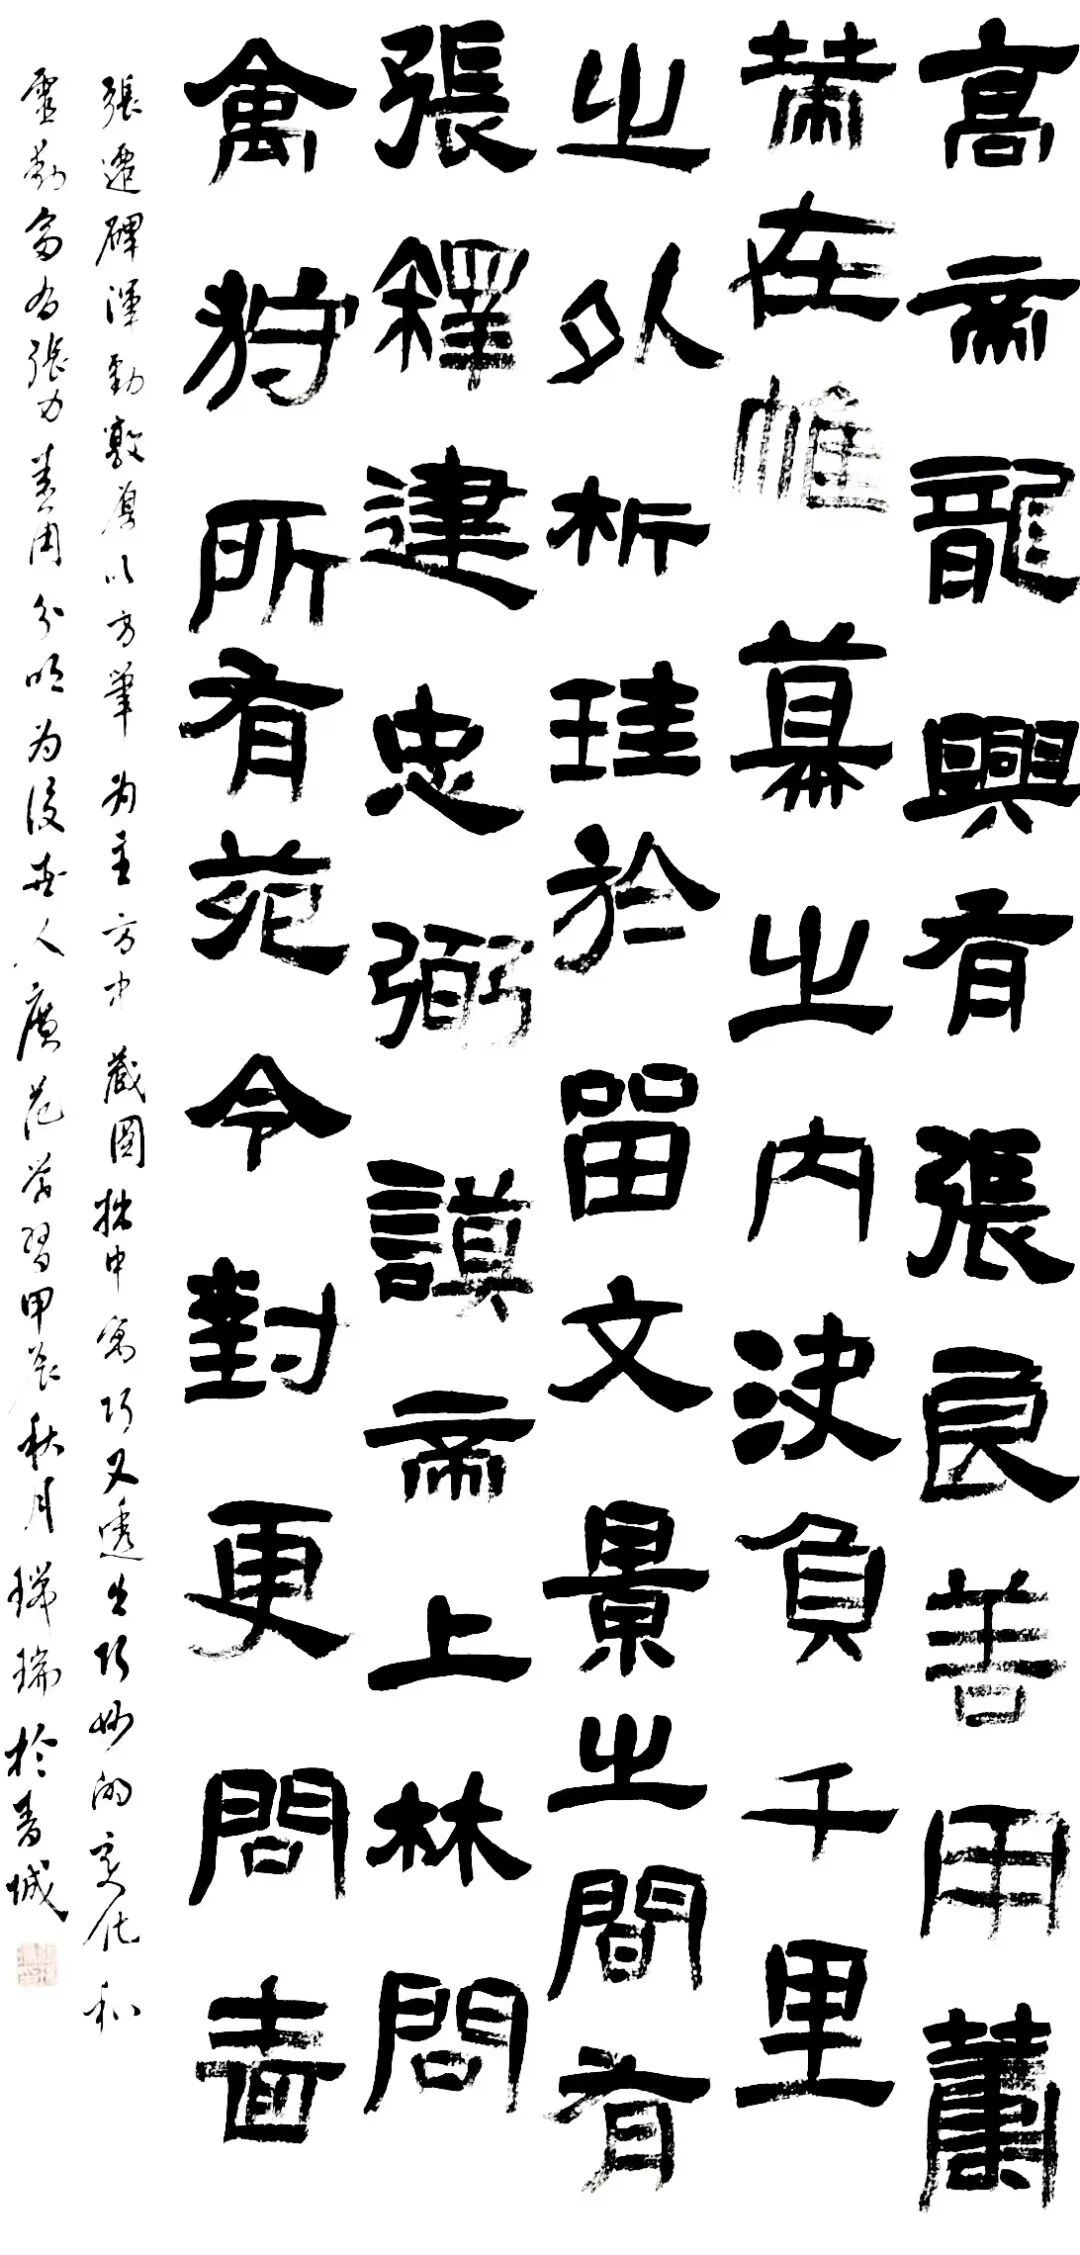 高帝龍興有張良善用蕭
苐在帷幕之内決負千里
之外析珪於留文景之間有
張釋建忠弼謨帝上林問
禽狩所有苑令對更問嗇
張遷碑渾勁敦厚以方筆為主方中藏圓拙中寓巧又透出巧妙的变化和
靈動富有張力 分明为後世人廣范学習甲辰秋月 瑞於青城